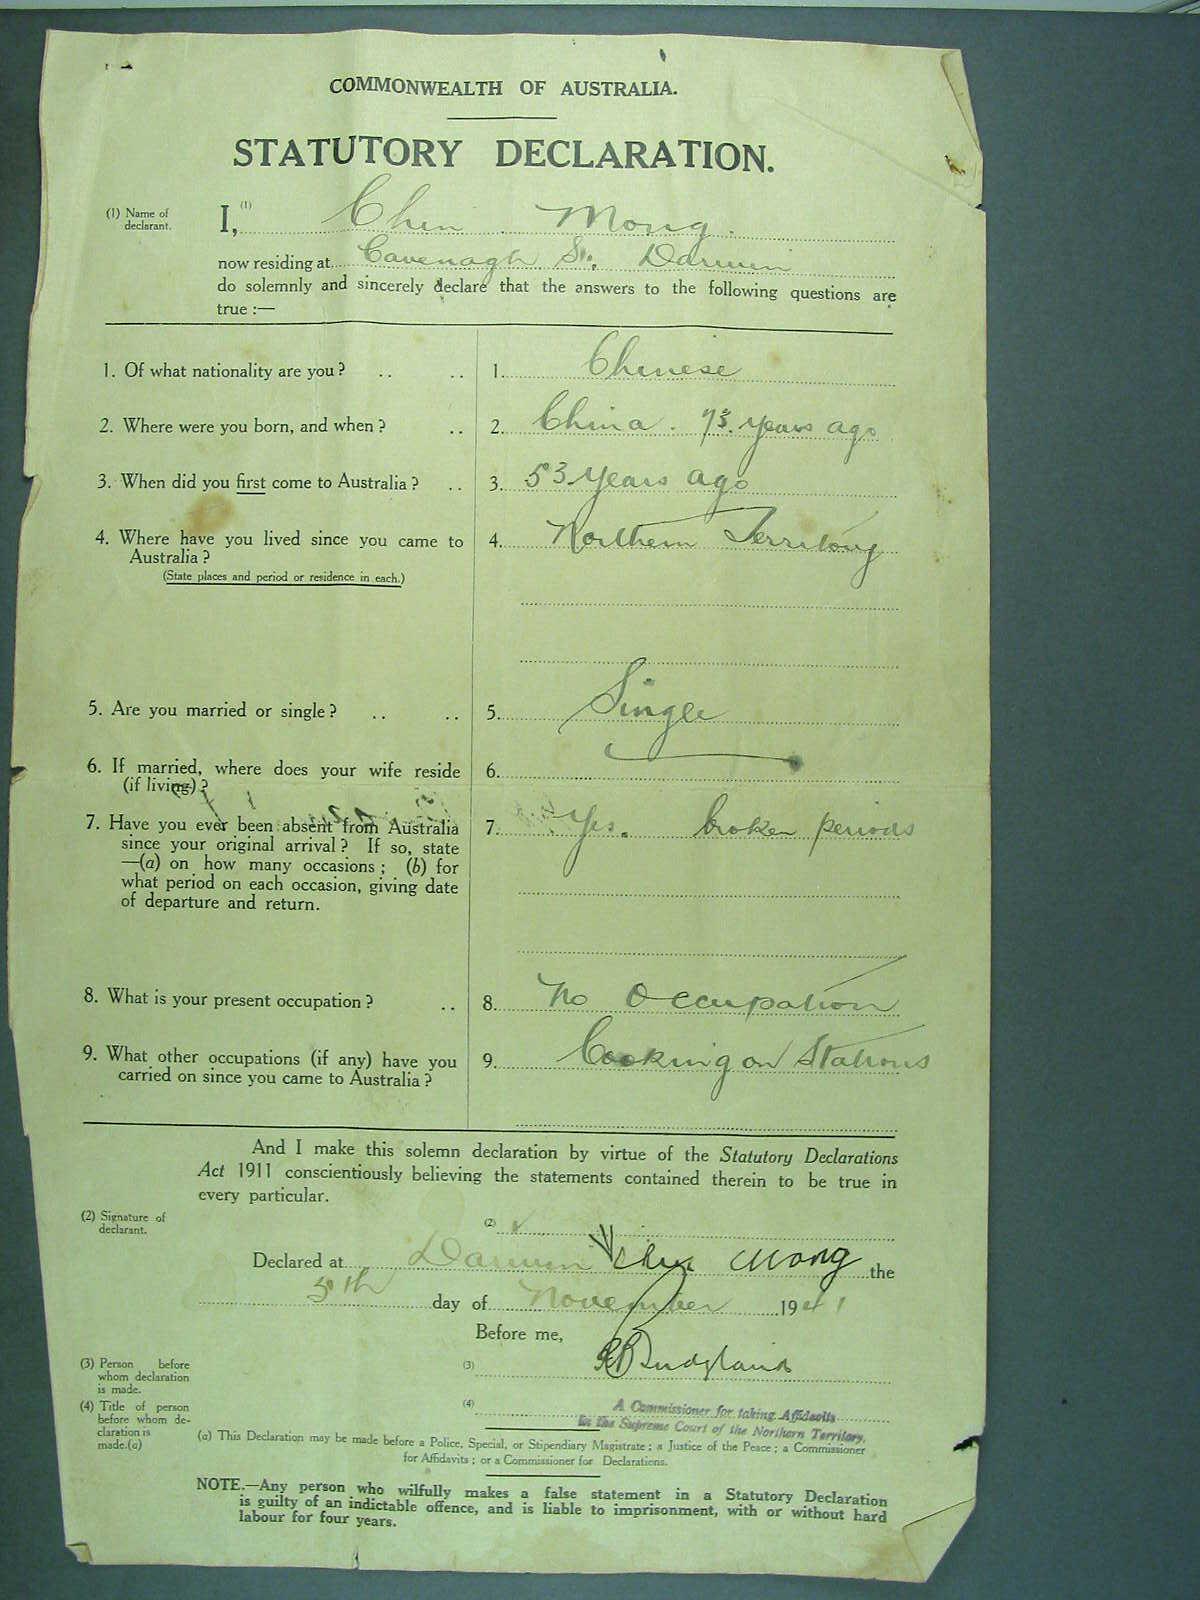 COMMONWEALTH OF AUSTRALIA.
STATUTORY DECLARATION.
(1) Name of declarant.
I, (1) Chin Mong.
now residing at Cavenagh St., Darwin
do solemnly and sincerely declare that the answers to the following questions are
true :—
1. Of what nationality are you ? .. .. 1. Chinese
2. Where were you born, and when ? .. 2. China. 73. years ago
3. When did you first come to Australia ? .. 3. 53 Years ago
4. Where have you lived since you came to 4. Northern Territory
Australia ?
(State places and period or residence in each.)
5. Are you married or single ? .. .. 5. Single
6. If married, where does your wife reside 6.
(if living) ?
7. Have you ever been absent from Australia 7. Yes. broken periods
since your original arrival ? If so, state
—(a) on how many occasions ; (b) for
what period on each occasion, giving date
of departure and return.
8. What is your present occupation ? .. 8. No Occupation
9. What other occupations (if any) have you 9. Cooking on Stations
carried on since you came to Australia ?
And I make this solemn declaration by virtue of the Statutory Declarations
Act 1911 conscientiously believing the statements contained therein to be true in
every particular.
(2) Signature of declarant.
(2)
Declared at Darwin Chin Mong the
5th day of November 1941
Before me,
(3) Person before
whom declaration
is made.
(3)
(4) Title of person
before whom de-
claration is
made.(a)
(4) A Commissioner for taking Affidavits
in the Supreme Court of the Northern Territory.
(a) This Declaration may be made before a Police, Special, or Stipendiary Magistrate ; a Justice of the Peace ; a Commissioner
for Affidavits ; or a Commissioner for Declarations.
NOTE.—Any person who wilfully makes a false statement in a Statutory Declaration
is guilty of an indictable offence, and is liable to imprisonment, with or without hard
labour for four years.